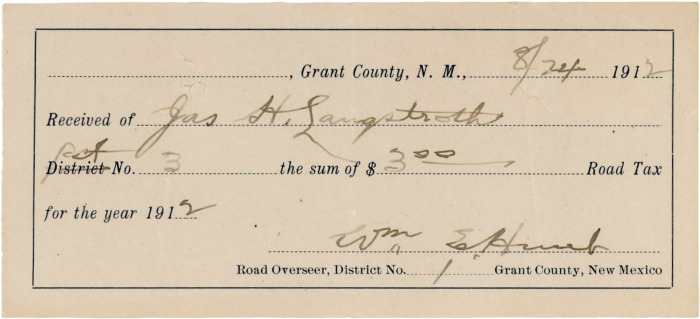 , Grant County, N. M., 8/24 1912
Received of Jas H. Langstroth
Pct District No. 3 the sum of $ 3 00 Road Tax
for the year 1912
Wm E.
Road Overseer, District No. 1 Grant County, New Mexico